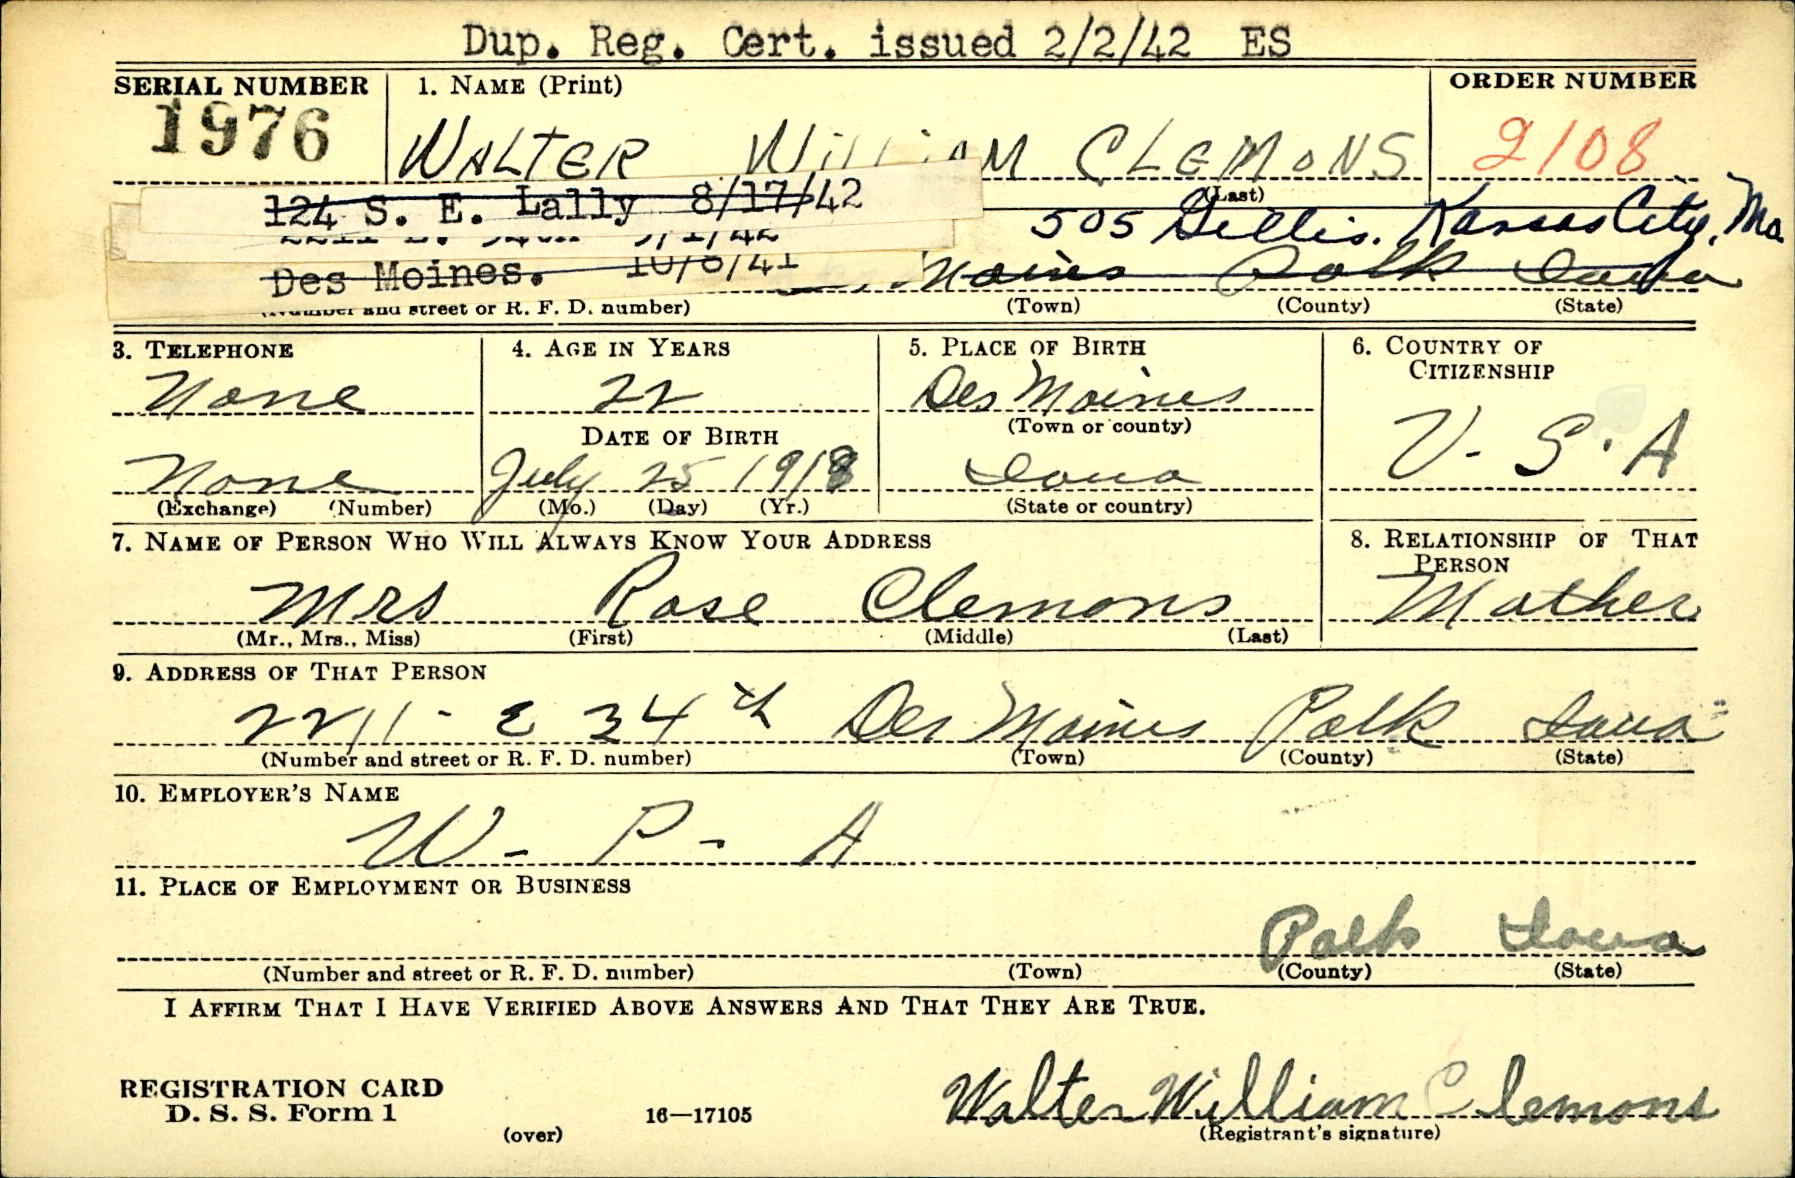 Dup. Reg. Cert. issued 2/2/42 ES
SERIAL NUMBER
1. NAME (Print)
ORDER NUMBER
1976
WALTER WILLIAM CLEMONS
2108
(Last)
124 S. E. Lally 8/17/42
505 Gillis, Kansas City, Mo
Des Moines. 10/8/41
Moines Polk Iowa
(Number and street or R. F. D. number) (Town) (County) (State)
3. TELEPHONE
4. AGE IN YEARS
5. PLACE OF BIRTH
6. COUNTRY OF CITIZENSHIP
None
22
Des Moines
(Town or county)
U. S. A
DATE OF BIRTH
None
July 25 1918
Iowa
(Exchange) (Number)
(Mo.) (Day) (Yr.)
(State or country)
7. NAME OF PERSON WHO WILL ALWAYS KNOW YOUR ADDRESS
8. RELATIONSHIP OF THAT PERSON
Mrs Rose Clemons
Mother
(Mr., Mrs., Miss) (First) (Middle) (Last)
9. ADDRESS OF THAT PERSON
2211 - E 34th Des Moines Polk Iowa
(Number and street or R. F. D. number) (Town) (County) (State)
10. EMPLOYER'S NAME
W - P - A
11. PLACE OF EMPLOYMENT OR BUSINESS
Polk Iowa
(Number and street or R. F. D. number) (Town) (County) (State)
I AFFIRM THAT I HAVE VERIFIED ABOVE ANSWERS AND THAT THEY ARE TRUE.
REGISTRATION CARD
D. S. S. Form 1
(over)
16—17105
Walter William Clemons
(Registrant's signature)